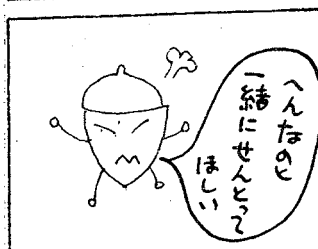 へんなのと
一緒にせんとって
ほしい